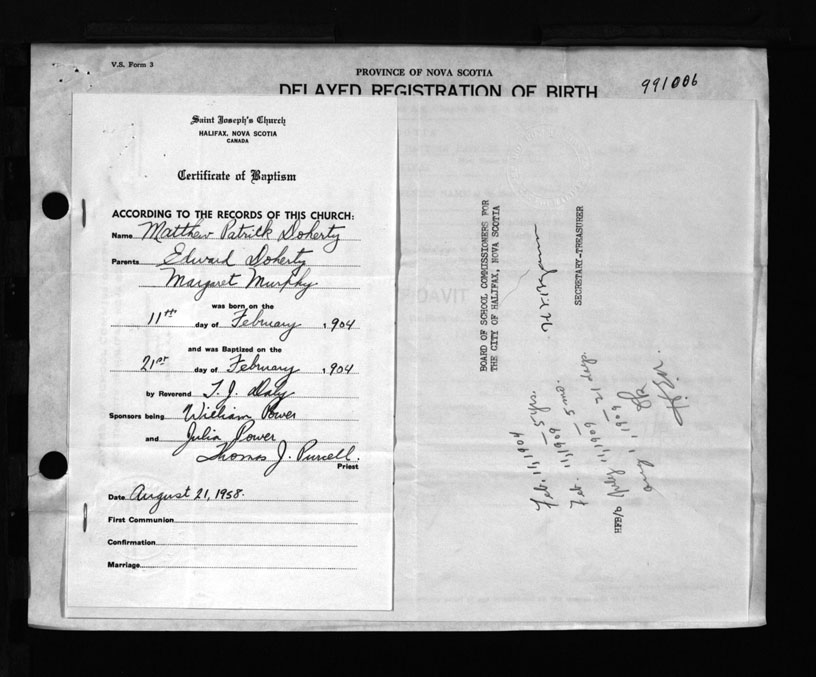 V.S. Form 3
PROVINCE OF NOVA SCOTIA
DELAYED REGISTRATION OF BIRTH
991006
Saint Joseph's Church
HALIFAX, NOVA SCOTIA
CANADA
Certificate of Baptism
ACCORDING TO THE RECORDS OF THIS CHURCH:
Name Matthew Patrick Doherty
Parents Edward Doherty
Margaret Murphy
was born on the
11th day of February 1904
and was Baptized on the
21st day of February 1904
by Reverend T. J. Daly
Sponsors being William Power
and Julia Power
Thomas J. Purcell.
Priest
Date August 21, 1958.
First Communion
Confirmation
Marriage
BOARD OF SCHOOL COMMISSIONERS FOR
THE CITY OF HALIFAX, NOVA SCOTIA
SECRETARY-TREASURER
Feb. 11, 1904
Feb. 11, 1909 — 5 yrs.
July 11, 1909 — 5 mo.
Aug. 1, 1909 — 21 days
HFB/b